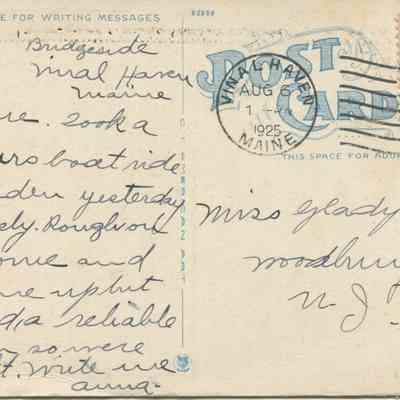 E FOR WRITING MESSAGES
Bridgeside
Vinal Haven
Maine
re. Took a
urs boat ride
den yesterday
ely. Rough on
ome and
me up but
d, a reliable
so were
t. Write me
Anna-
POST
CARD
VINAL HAVEN
AUG 5
1
1925
MAINE
THIS SPACE FOR ADDR
Miss Glady
Woodbu
N.J.